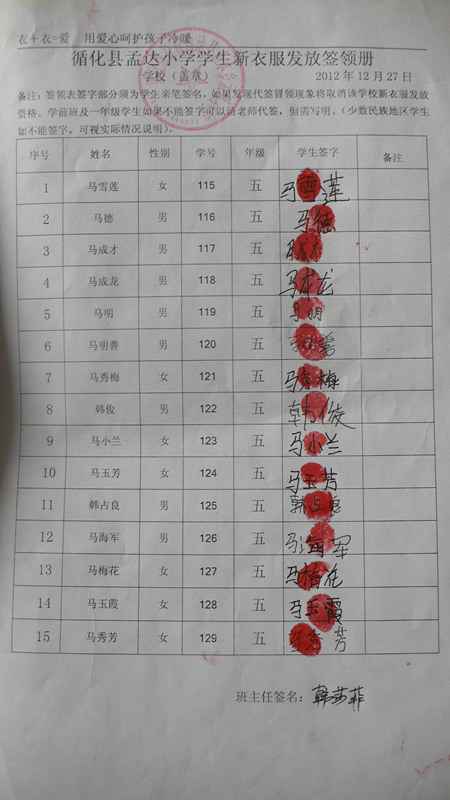 衣+衣=爱 用爱心呵护孩子冷暖
循化县孟达小学学生新衣服发放签领册
学校(盖章) 2012年12月27日
备注:签领表签字部分须为学生亲笔签名,如果发现代签冒领现象将取消该学校新衣服发放
资格。学前班及一年级学生如果不能签字可以请老师代签,但需写明。(少数民族地区学生
如不能签字,可视实际情况说明)。
序号 姓名 性别 学号 年级 学生签字 备注
1 马雪莲 女 115 五 马雪莲
2 马德 男 116 五 马德
3 马成才 男 117 五
4 马成龙 男 118 五 马成龙
5 马明 男 119 五 马明
6 马明善 男 120 五 马明善
7 马秀梅 女 121 五 马秀梅
8 韩俊 男 122 五 韩俊
9 马小兰 女 123 五 马小兰
10 马玉芳 女 124 五 马玉芳
11 韩占良 男 125 五 韩占良
12 马海军 男 126 五 马海军
13 马梅花 女 127 五 马梅花
14 马玉霞 女 128 五 马玉霞
15 马秀芳 女 129 五 马秀芳
班主任签名:韩莎菲